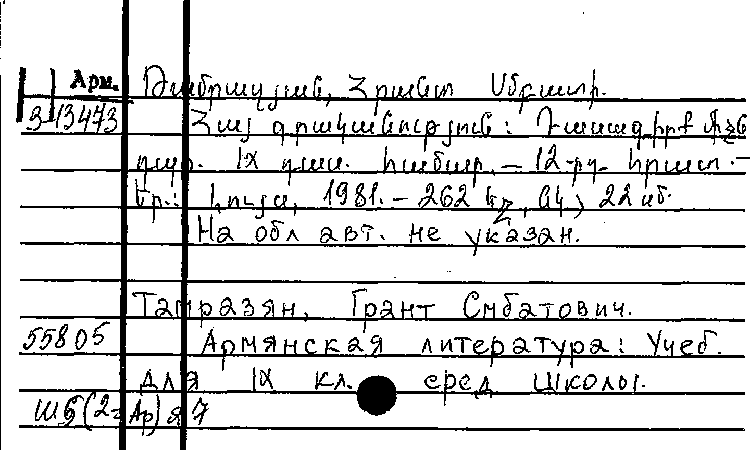 Арм. Թամրազյան, Հրանտ Սմբատի.
3-13473 Հայ գրականություն: Դասագիրք միջն
դպր. IX դաս. համար. – 12-րդ հրատ. –
Եր.: Լույս, 1981. – 262 էջ, նկ, 22 սմ.
На обл авт. не указан.
Тамразян, Грант Смбатович.
55805 Армянская литература: Учеб.
для IX кл. сред школы.
Ш5(2=Ар)я7